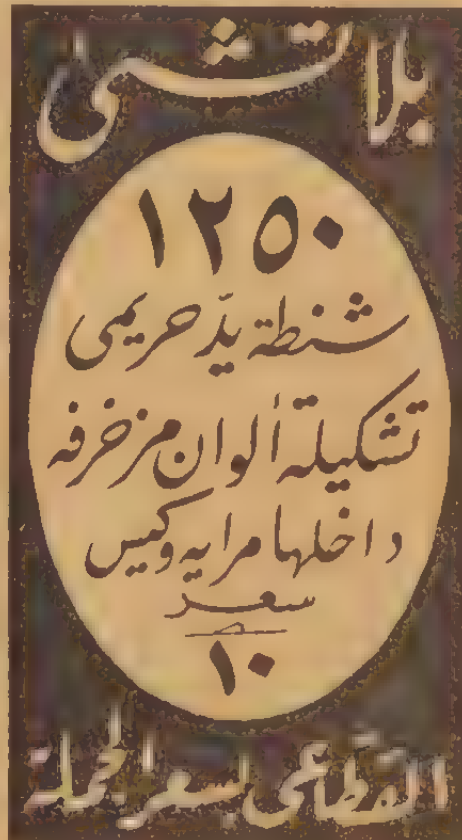 بلاتشى
١٢٥٠
شنطة يدّ حريمى
تشكيلة ألوان مزخرفه
داخلها مرايه وكيس
سعر
١٠
القطاعى بسعر الجملة